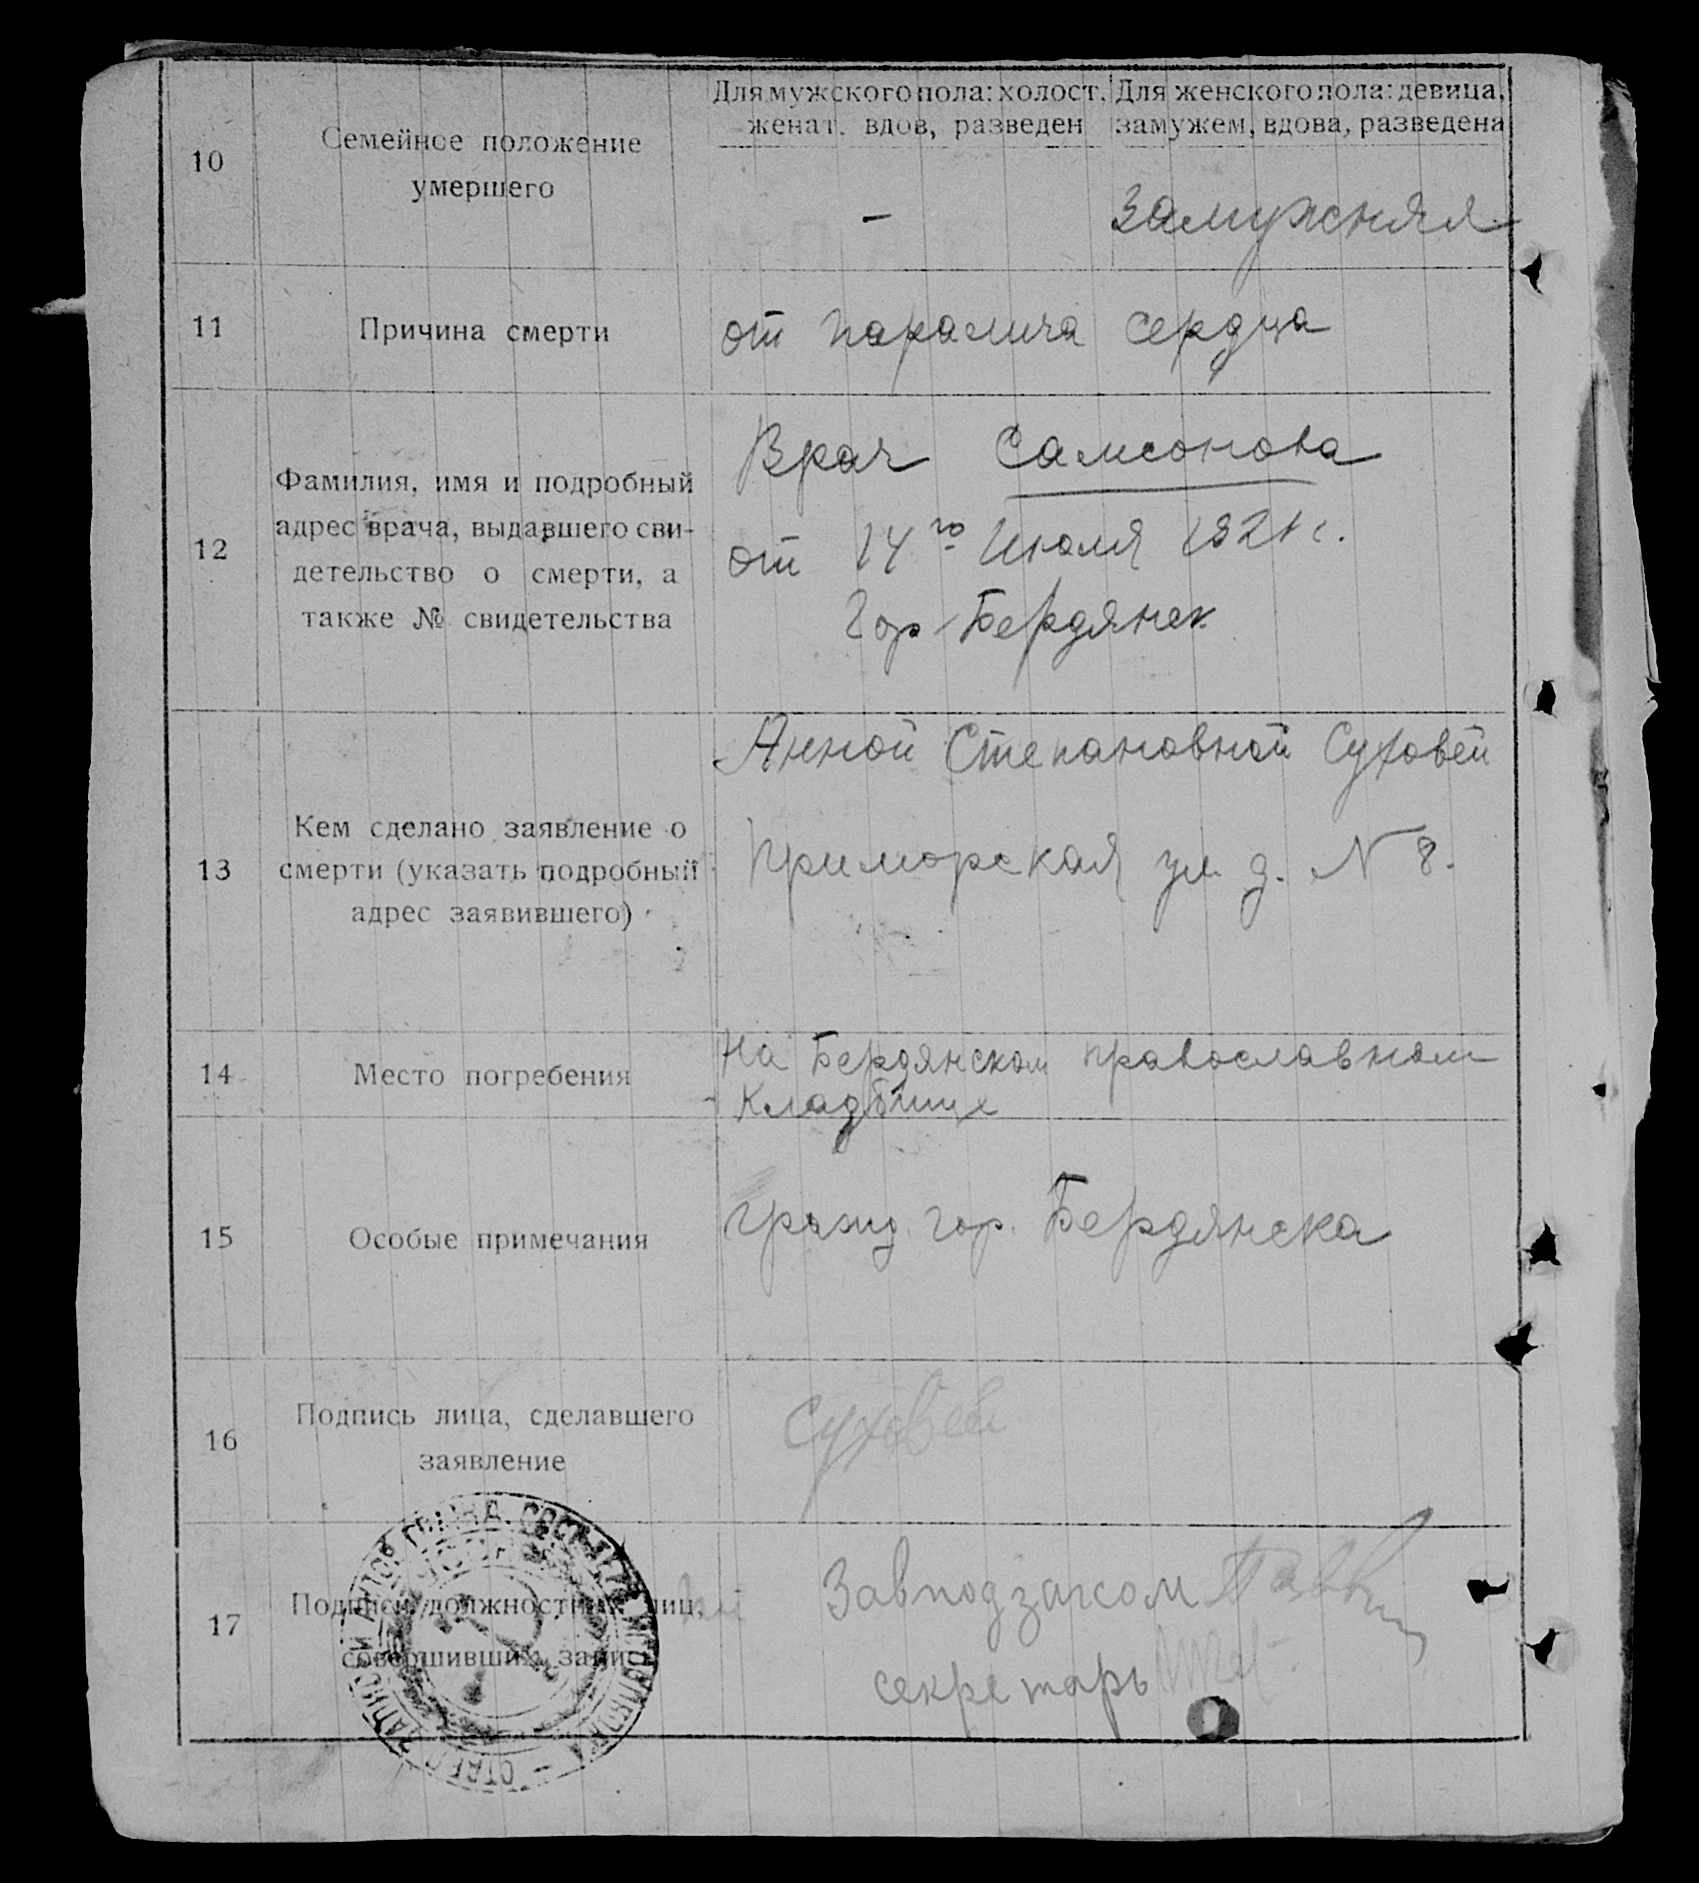 10
Семейное положение
умершего
Для мужского пола: холост,
женат, вдов, разведен
Для женского пола: девица,
замужем, вдова, разведена
–
замужняя
11
Причина смерти
от паралича сердца
12
Фамилия, имя и подробный
адрес врача, выдавшего сви-
детельство о смерти, а
также № свидетельства
Врач Самсонова
от 14го Июля 1921 г.
Гор Бердянск
13
Кем сделано заявление о
смерти (указать подробный
адрес заявившего)
Анной Степановной Суховей
Приморская ул. д. N 8.
14
Место погребения
На Бердянском православном
кладбище
15
Особые примечания
гражд. гор. Бердянска
16
Подпись лица, сделавшего
заявление
Суховей
17
Подписи должностных лиц,
совершивших запись
Завподзагсом
секретарь